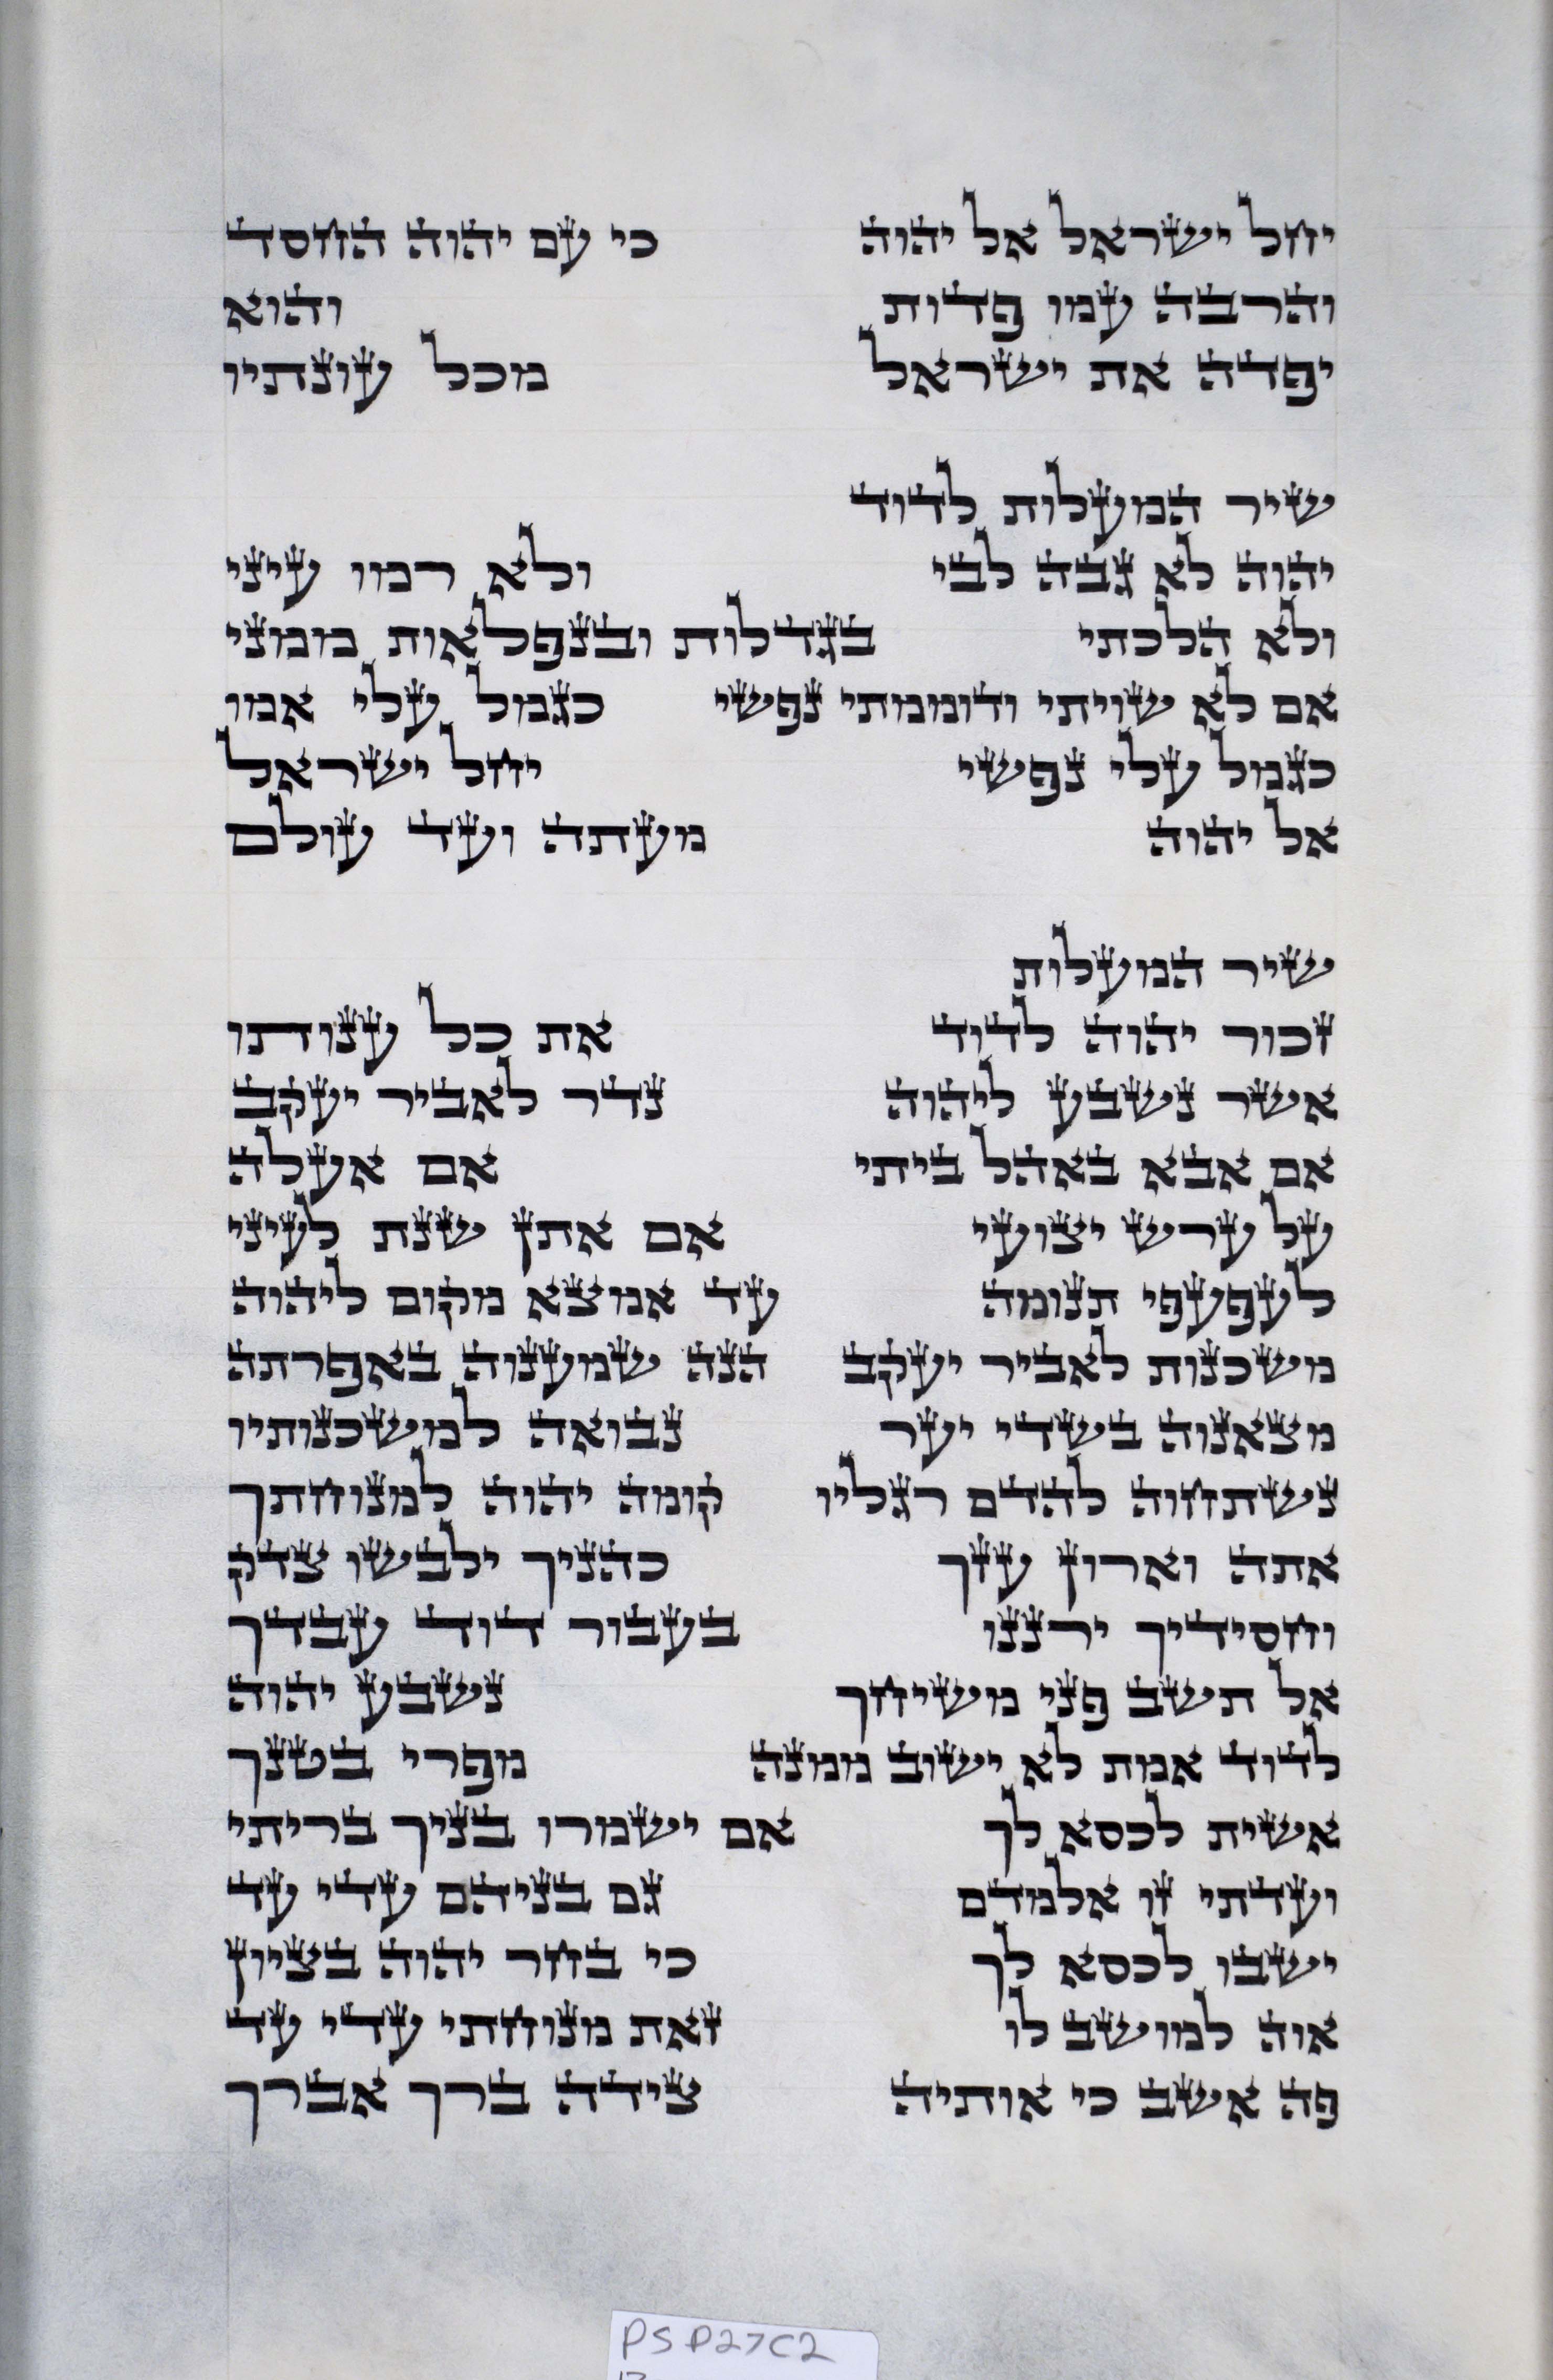 יחל ישראל אל יהוה כי עם יהוה החסד
והרבה עמו פדות והוא
יפדה את ישראל מכל עונתיו
שיר המעלות לדוד
יהוה לא גבה לבי ולא רמו עיני
ולא הלכתי בגדלות ובנפלאות ממני
אם לא שויתי ודוממתי נפשי כגמל עלי אמו
כגמל עלי נפשי יחל ישראל
אל יהוה מעתה ועד עולם
שיר המעלות
זכור יהוה לדוד את כל ענותו
אשר נשבע ליהוה נדר לאביר יעקב
אם אבא באהל ביתי אם אעלה
על ערש יצועי אם אתן שנת לעיני
לעפעפי תנומה עד אמצא מקום ליהוה
משכנות לאביר יעקב הנה שמענוה באפרתה
מצאנוה בשדי יער נבואה למשכנותיו
נשתחוה להדם רגליו קומה יהוה למנוחתך
אתה וארון עזך כהניך ילבשו צדק
וחסידיך ירננו בעבור דוד עבדך
אל תשב פני משיחך נשבע יהוה
לדוד אמת לא ישוב ממנה מפרי בטנך
אשית לכסא לך אם ישמרו בניך בריתי
ועדתי זו אלמדם גם בניהם עדי עד
ישבו לכסא לך כי בחר יהוה בציון
אוה למושב לו זאת מנוחתי עדי עד
פה אשב כי אותיה צידה ברך אברך
PS P27C2